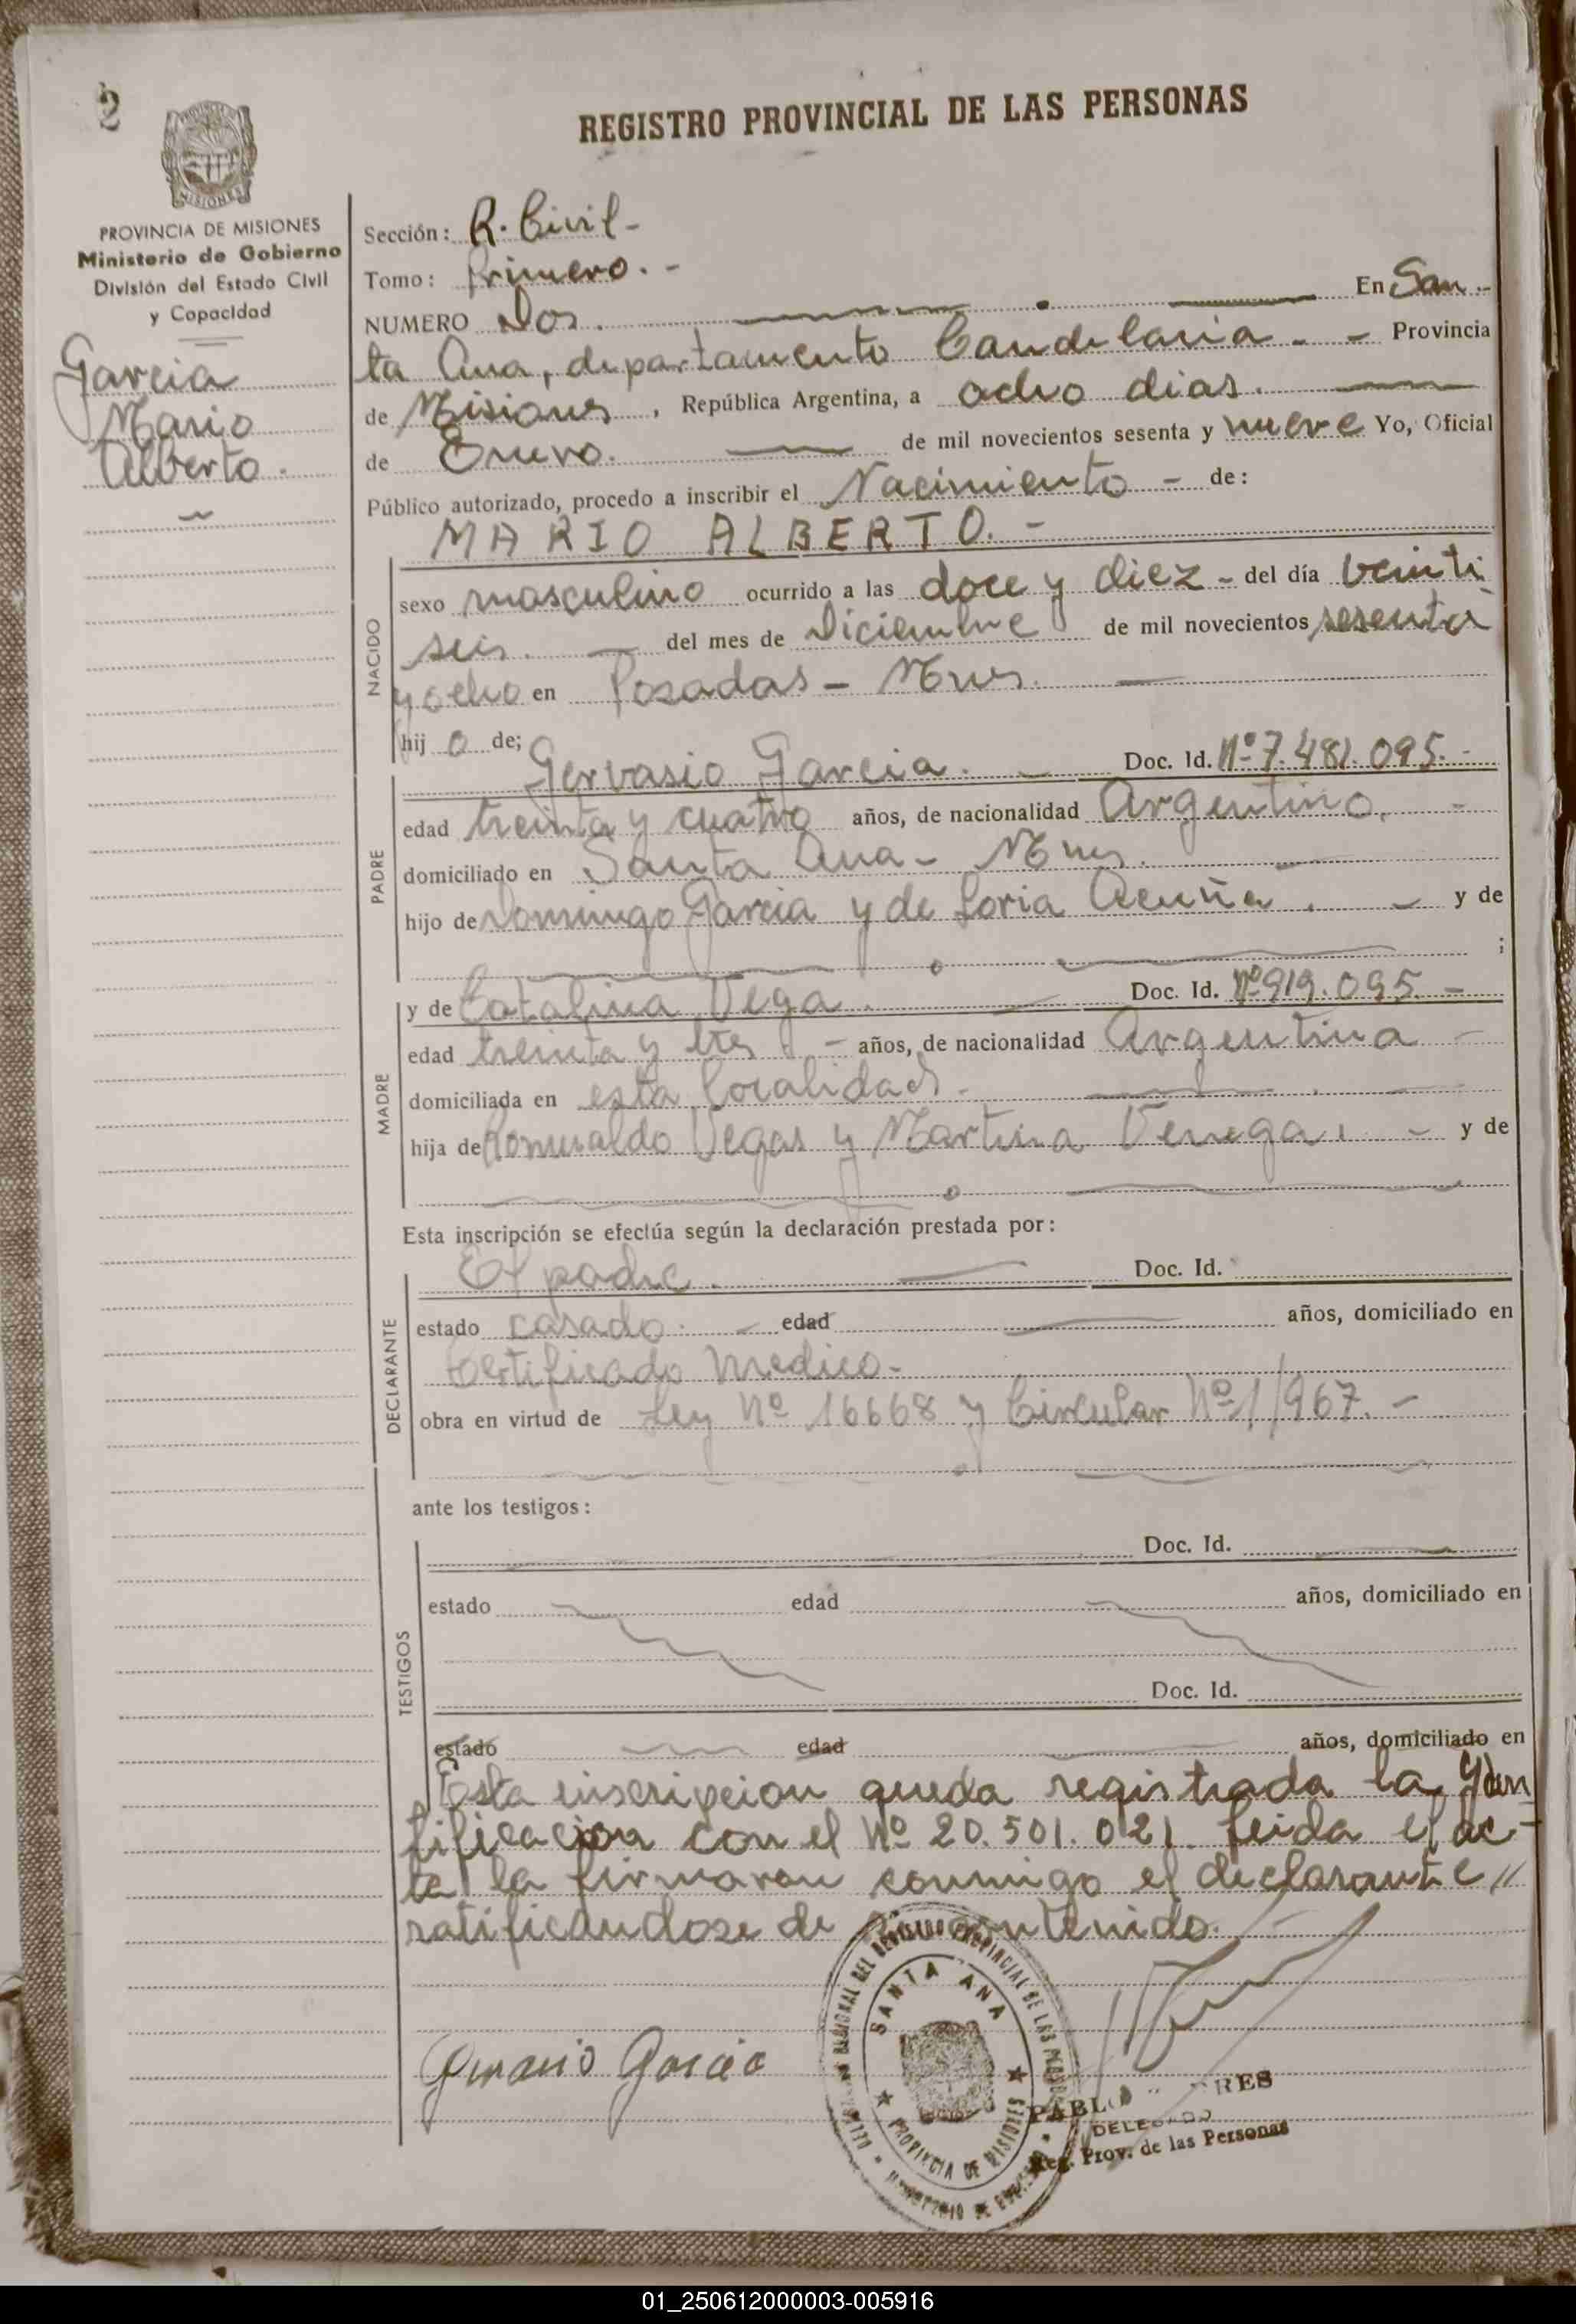 2
REGISTRO PROVINCIAL DE LAS PERSONAS
MISIONES
PROVINCIA DE MISIONES
Ministerio de Gobierno
División del Estado Civil
y Capacidad
Garcia
Mario
Alberto.
Sección: R. Civil-
Tomo: Primero.-
NUMERO Dos. En San-
ta Ana, departamento Candelaria - Provincia
de Misiones, República Argentina, a ocho dias.
de Enero. de mil novecientos sesenta y nueve Yo, Oficial
Público autorizado, procedo a inscribir el Nacimiento - de:
MARIO ALBERTO.-
NACIDO
sexo masculino ocurrido a las doce y diez - del día veinti
seis. del mes de Diciembre de mil novecientos sesenta
y ocho en Posadas - Mnes.
hijo de; Gervasio Garcia. Doc. Id. Nº 7.481.095.-
PADRE
edad treinta y cuatro años, de nacionalidad Argentino.
domiciliado en Santa Ana - Mnes.
hijo de Domingo Garcia y de Loria Acuña. y de
;
MADRE
y de Catalina Vega. Doc. Id. Nº 919.095.-
edad treinta y tres - años, de nacionalidad Argentina -
domiciliada en esta localidad.
hija de Romualdo Vegas y Martina Venega. - y de
Esta inscripción se efectúa según la declaración prestada por:
DECLARANTE
El padre. Doc. Id.
estado casado. edad años, domiciliado en
Certificado Medico-
obra en virtud de Ley Nº 16668 y Circular Nº 1/967.-
ante los testigos:
TESTIGOS
Doc. Id.
estado edad años, domiciliado en
Doc. Id.
estado edad años, domiciliado en
Esta inscripcion queda registrada la Yden
tificacion con el Nº 20.501.021. Leida el ac-
ta la firmaron conmigo el declarante //
ratificandose de su contenido.
Gervasio Garcia
SANTA ANA
PROVINCIA DE MISIONES
PABLO
DELEGADO
Reg. Prov. de las Personas
01_250612000003-005916